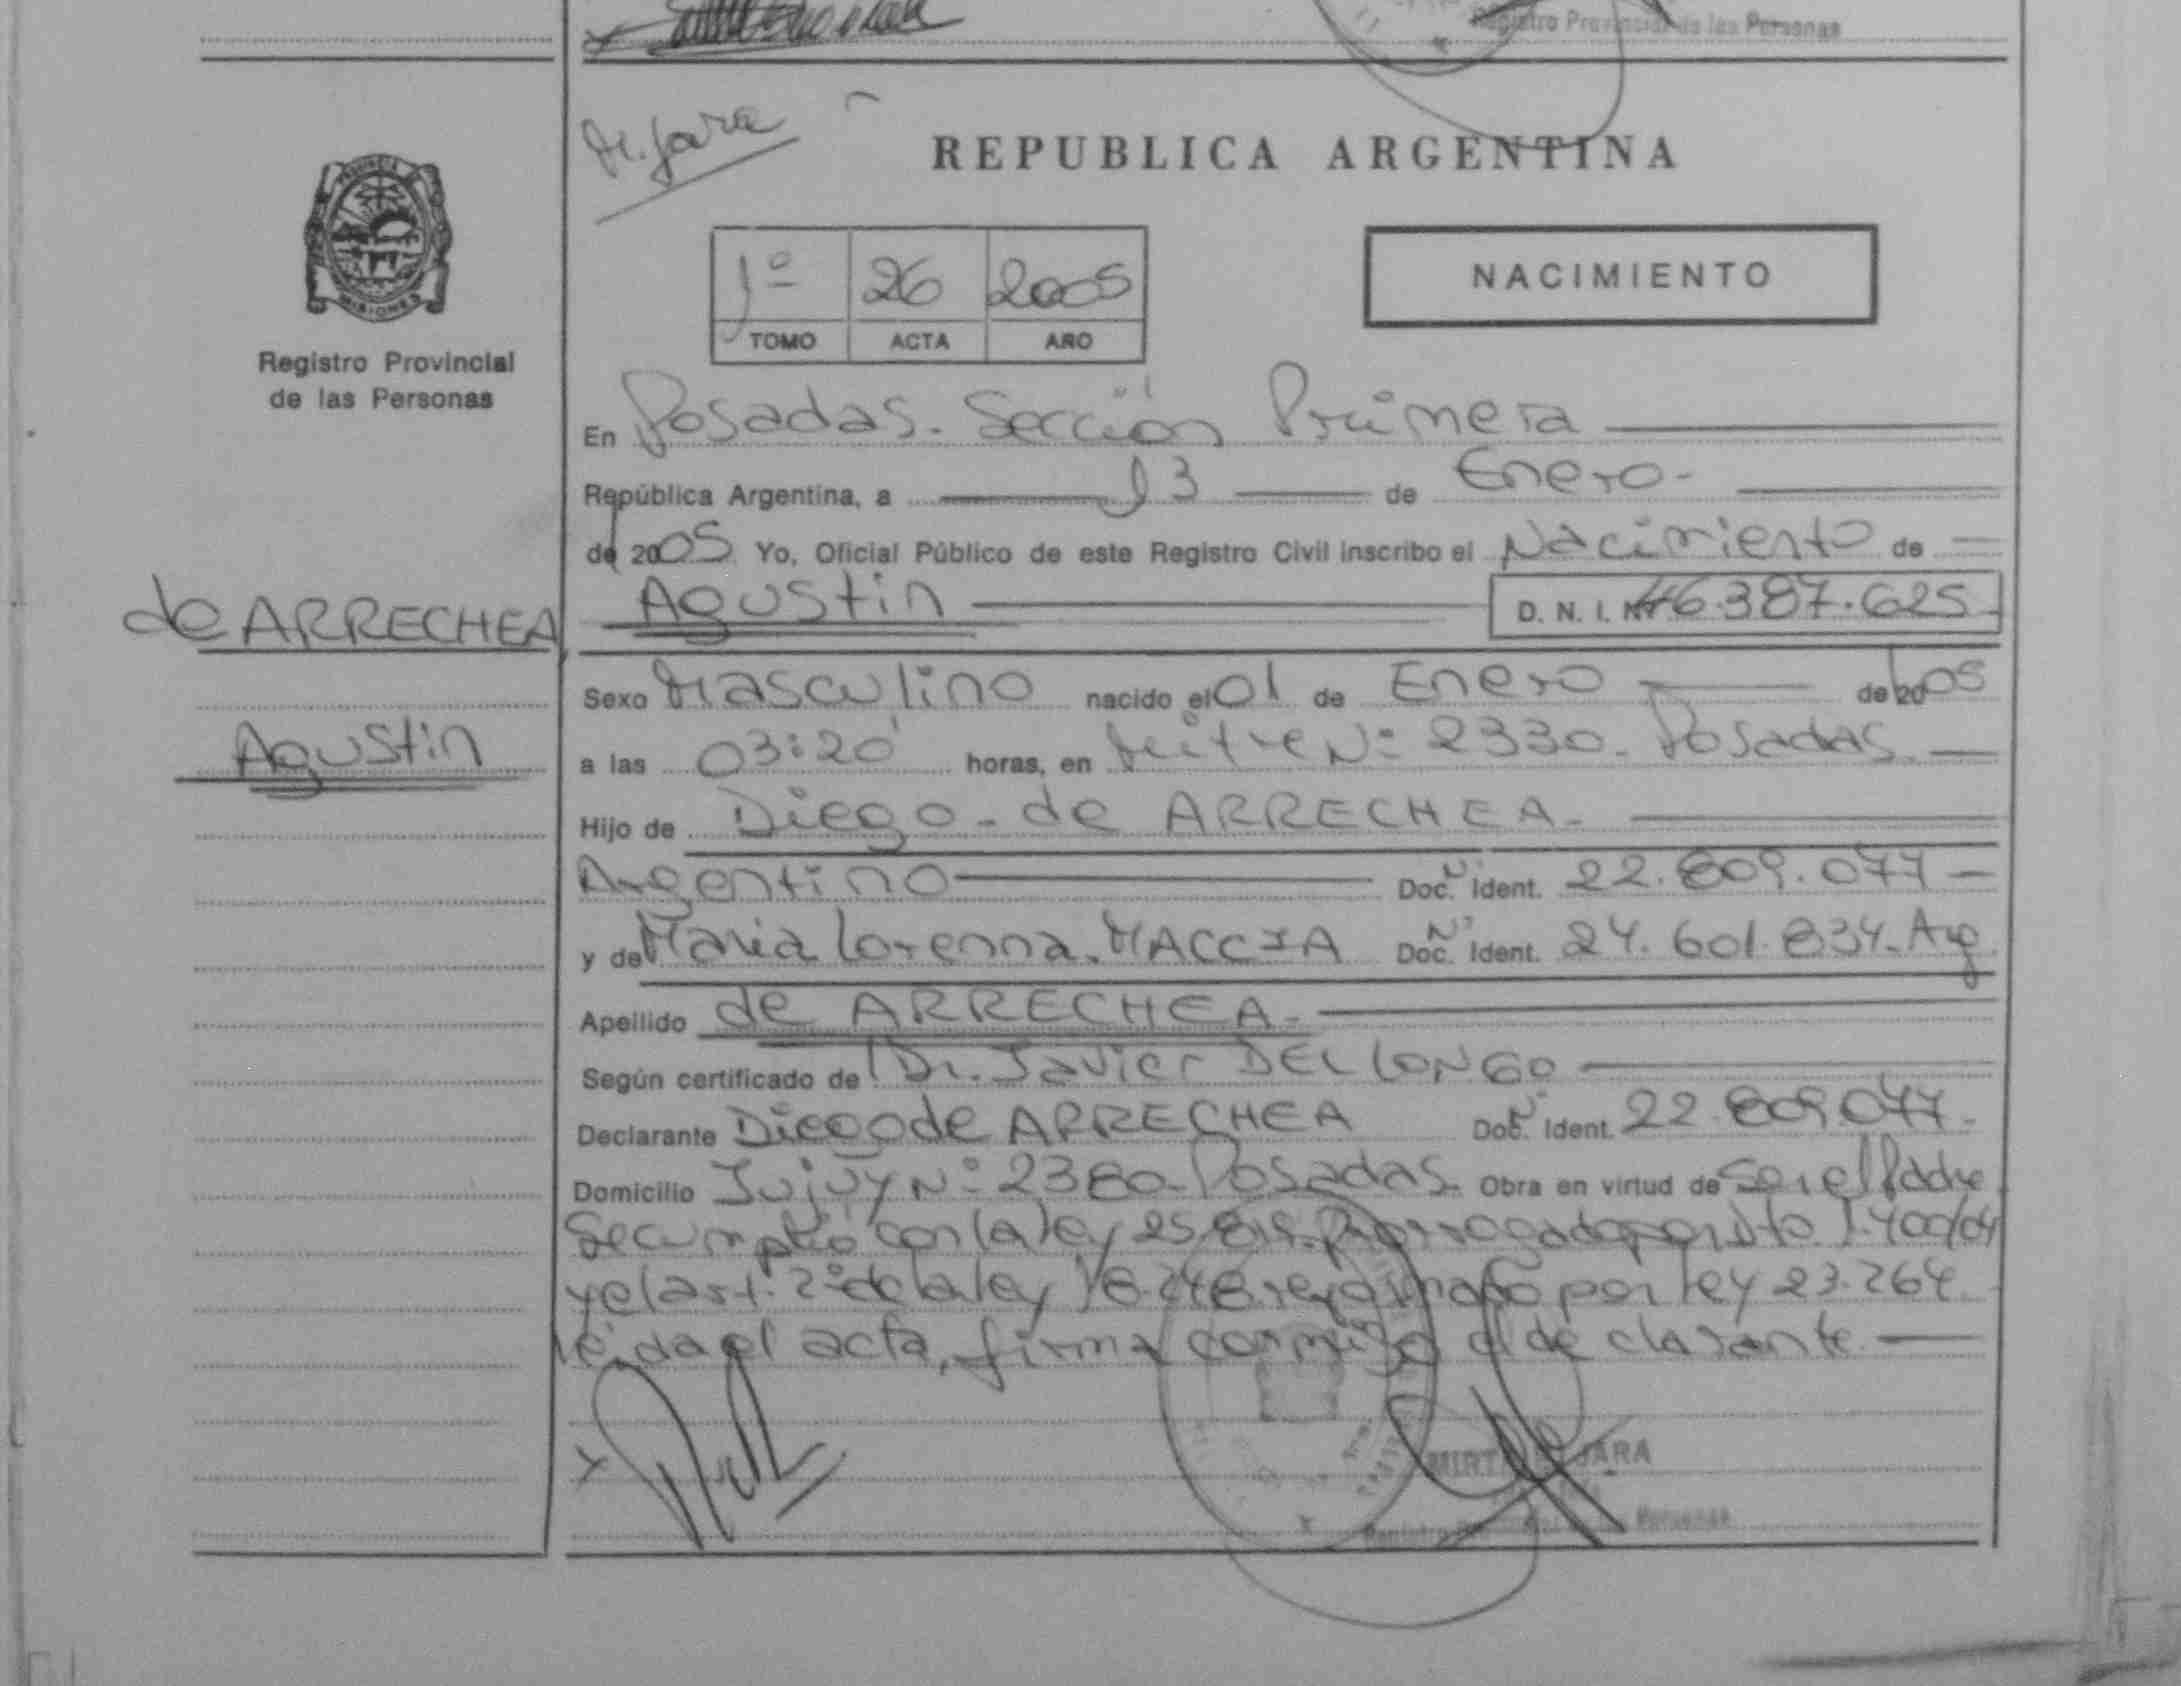 Registro Provincial de las Personas
M. Jara
REPUBLICA ARGENTINA
PROVINCIA
MISIONES
Registro Provincial
de las Personas
1º 26 2005
TOMO ACTA AÑO
NACIMIENTO
En Posadas. Sección Primera
República Argentina, a 13 de Enero.
de 2005 Yo, Oficial Público de este Registro Civil inscribo el Nacimiento de
de ARRECHEA
Agustin
Agustin D. N. I. Nº 46.387.625
Sexo Masculino nacido el 01 de Enero de 2005
a las 03:20 horas, en Mitre Nº 2330. Posadas.
Hijo de Diego de ARRECHEA.
Argentino Doc. Nº Ident. 22.809.077
y de Maria Lorenna. MACCIA Doc. Nº Ident. 24.601.834. Arg
Apellido de ARRECHEA.
Según certificado de Dr. Javier DEL LONGO
Declarante Diego de ARRECHEA Doc. Nº Ident. 22.809.077.
Domicilio Jujuy Nº 2380. Posadas. Obra en virtud de Ser el Padre
Se cumplió con la ley 25.819. prorrogado por Dto. 1.400/04
y el art. 2º de la ley 18.248 reformado por ley 23.264.
leida el acta, firma conmigo el declarante.
JARA
Personas